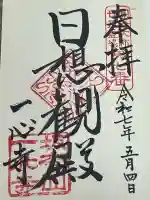 奉拝
令和七年五月四日
日想観殿
一心寺